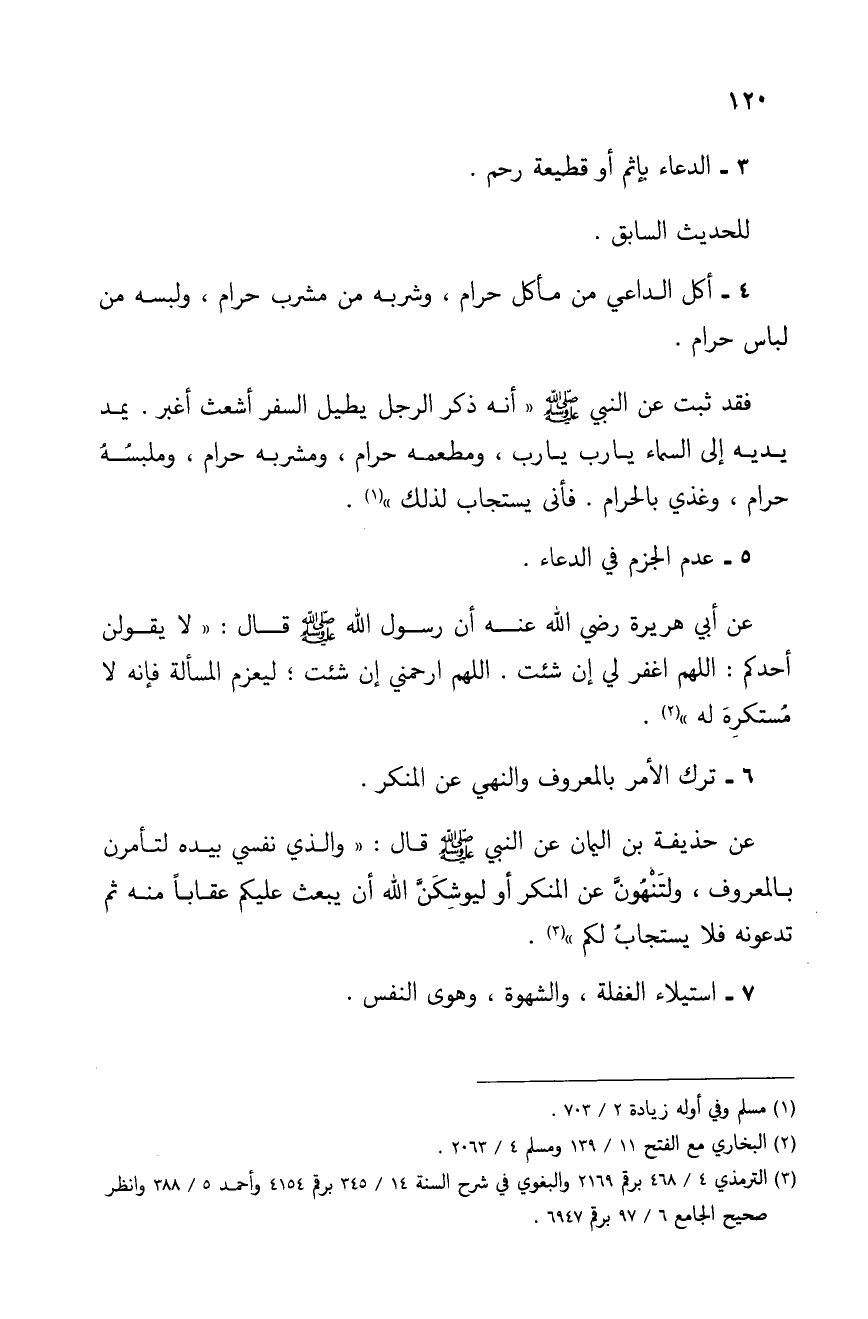 ١٢٠
٣ ـ الدعاء بإثم أو قطيعة رحم .
للحديث السابق .
٤ ـ أكل الداعي من مأكل حرام ، وشربه من مشرب حرام ، ولبسه من
لباس حرام .
فقد ثبت عن النبي ﷺ « أنه ذكر الرجل يطيل السفر أشعث أغبر . يمد
يديه إلى السماء يارب يارب ، ومطعمه حرام ، ومشربه حرام ، وملبسُهُ
حرام ، وغذي بالحرام . فأنى يستجاب لذلك »(١) .
٥ ـ عدم الجزم في الدعاء .
عن أبي هريرة رضي الله عنه أن رسول الله ﷺ قال : « لا يقولن
أحدكم : اللهم اغفر لي إن شئت . اللهم ارحمني إن شئت ؛ ليعزم المسألة فإنه لا
مُستكرِهَ له »(٢) .
٦ ـ ترك الأمر بالمعروف والنهي عن المنكر .
عن حذيفة بن اليمان عن النبي ﷺ قال : « والذي نفسي بيده لتأمرن
بالمعروف ، ولتَنْهُونَّ عن المنكر أو ليوشِكَنَّ الله أن يبعث عليكم عقاباً منه ثم
تدعونه فلا يستجابُ لكم »(٣) .
٧ ـ استيلاء الغفلة ، والشهوة ، وهوى النفس .
(١) مسلم وفي أوله زيادة ٢ / ٧٠٣ .
(٢) البخاري مع الفتح ١١ / ١٣٩ ومسلم ٤ / ٢٠٦٣ .
(٣) الترمذي ٤ / ٤٦٨ برقم ٢١٦٩ والبغوي في شرح السنة ١٤ / ٣٤٥ برقم ٤١٥٤ وأحمد ٥ / ٣٨٨ وانظر
صحيح الجامع ٦ / ٩٧ برقم ٦٩٤٧ .